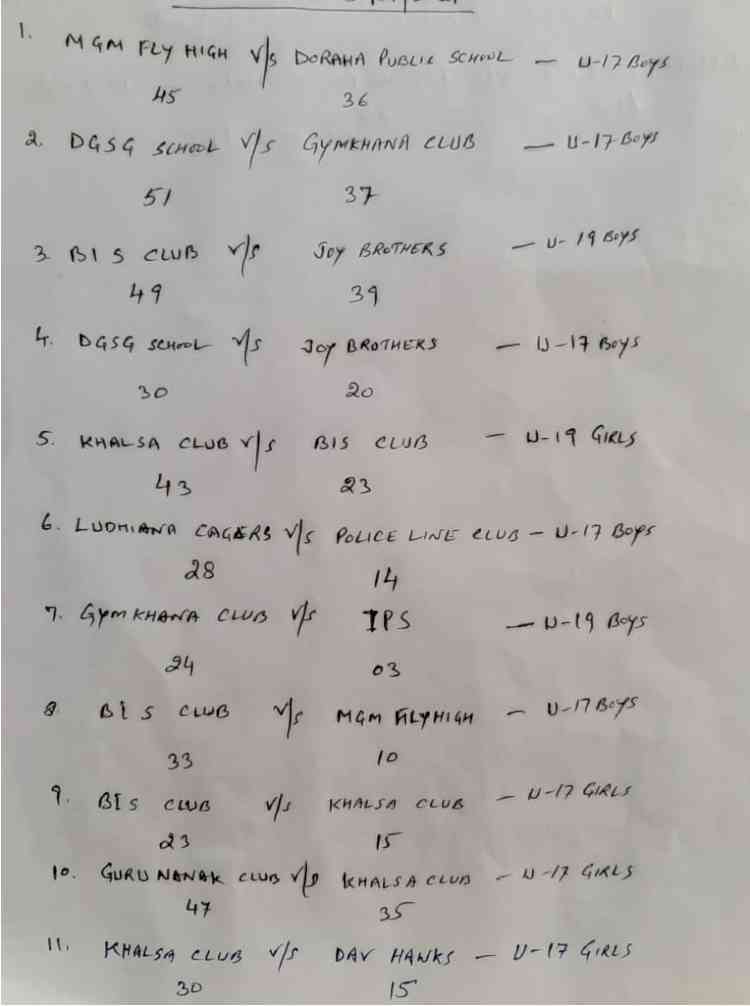 1. MGM FLY HIGH V/S DORAHA PUBLIC SCHOOL — U-17 Boys
45 36
2. DGSG SCHOOL V/S GYMKHANA CLUB — U-17 Boys
51 37
3. BIS CLUB V/S JOY BROTHERS — U-19 Boys
49 39
4. DGSG SCHOOL V/S JOY BROTHERS — U-17 Boys
30 20
5. KHALSA CLUB V/S BIS CLUB — U-19 GIRLS
43 23
6. LUDHIANA CAGERS V/S POLICE LINE CLUB — U-17 Boys
28 14
7. GYMKHANA CLUB V/S IPS — U-19 Boys
24 03
8. BIS CLUB V/S MGM FLYHIGH — U-17 Boys
33 10
9. BIS CLUB V/S KHALSA CLUB — U-17 GIRLS
23 15
10. GURU NANAK CLUB V/S KHALSA CLUB — U-17 GIRLS
47 35
11. KHALSA CLUB V/S DAV HAWKS — U-17 GIRLS
30 15